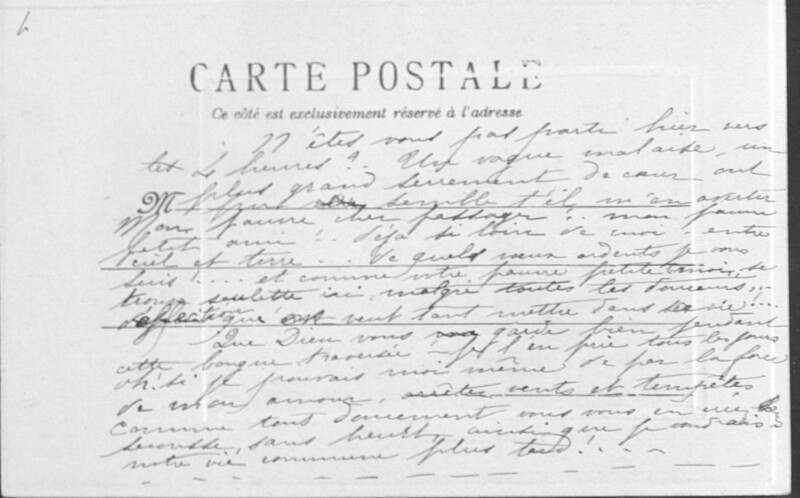 CARTE POSTALE
Ce côté est exclusivement réservé à l'adresse
N'êtes vous pas parti hier vers
les 4 heures ? Un vague malaise, un
plus grand serrement de cœur ont
M semble t'il, m'en avertir
Mon pauvre cher passager !.. mon pauvre
petit ami !.. déjà si loin de moi.. entre
ciel et terre ... de quels vœux ardents je vous
suis !.... et comme votre pauvre petite moi, se
trouve seulette ici, malgré toutes les douceurs
qu'on veut tant mettre dans sa vie !...
Que Dieu vous garde bien pendant
cette longue traversée - Je l'en prie tous les jours
oh! si je pouvais moi même de par la force
de mon amour, arrêter vents et tempêtes
comme tout doucement vous vous en
secousse, sans heurt, ainsi que je voudrais
notre vie commune plus tard !...